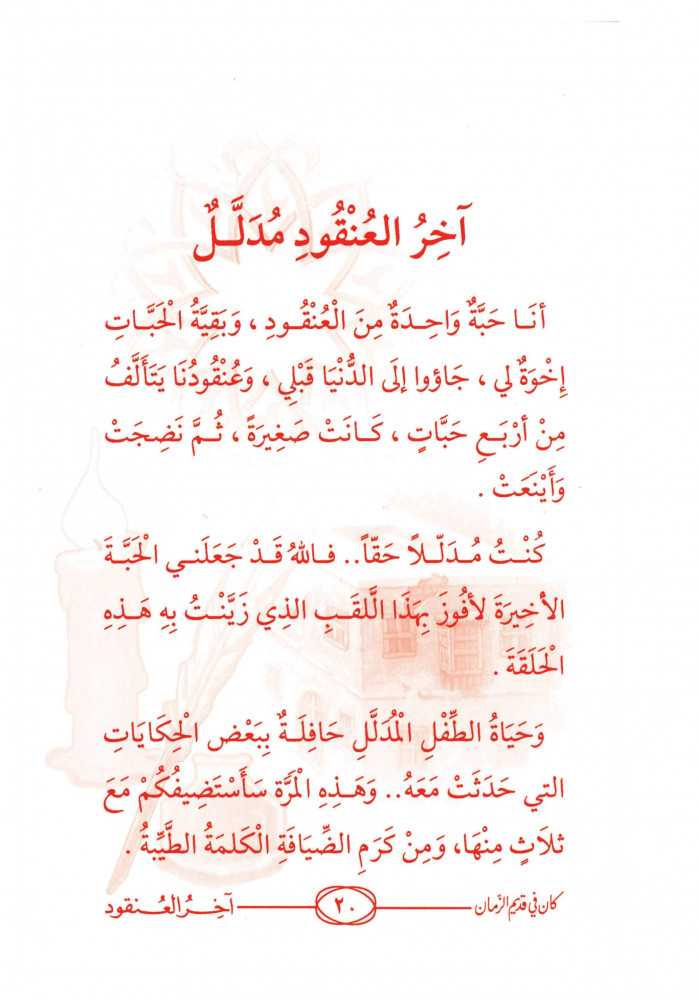 آخِرُ العُنْقُودِ مُدَلَّـلٌ
أنَـا حَبَّةٌ وَاحِـدَةٌ مِنَ الْعُنْقُـودِ ، وَبَقِيَّةُ الْحَبَّـاتِ
إِخْوَةٌ لي ، جَاؤوا إلَى الدُّنْيَا قَبْلِي ، وَعُنْقُودُنَا يَتَأَلَّفُ
مِنْ أرْبَـعِ حَبَّاتٍ ، كَـانَتْ صَغِيرَةً ، ثُـمَّ نَضِجَتْ
وَأَيْنَعَتْ .
كُنْـتُ مُـدَلّـلاً حَقّاً.. فـاللهُ قَـدْ جَعَلَنـي الْحَبَّـةَ
الأخِيرَةَ لأفُوزَ بِهَذَا اللَّقَبِ الذِي زَيَّنْـتُ بِهِ هَـذِهِ
الْحَلَقَةَ .
وَحَيَاةُ الطِّفْلِ الْمُدَلَّلِ حَافِلَـةٌ بِبَعْضِ الْحِكَايَاتِ
التي حَدَثَتْ مَعَهُ.. وَهَـذِهِ الْمَرَّةَ سَأَسْتَضِيفُكُمْ مَعَ
ثلاَثٍ مِنْهَا، وَمِنْ كَرَمِ الضِّيَافَةِ الْكَلمَةُ الطَّيِّبةُ .
كان في قديم الزّمان ٢٠ آخـر العـنقود